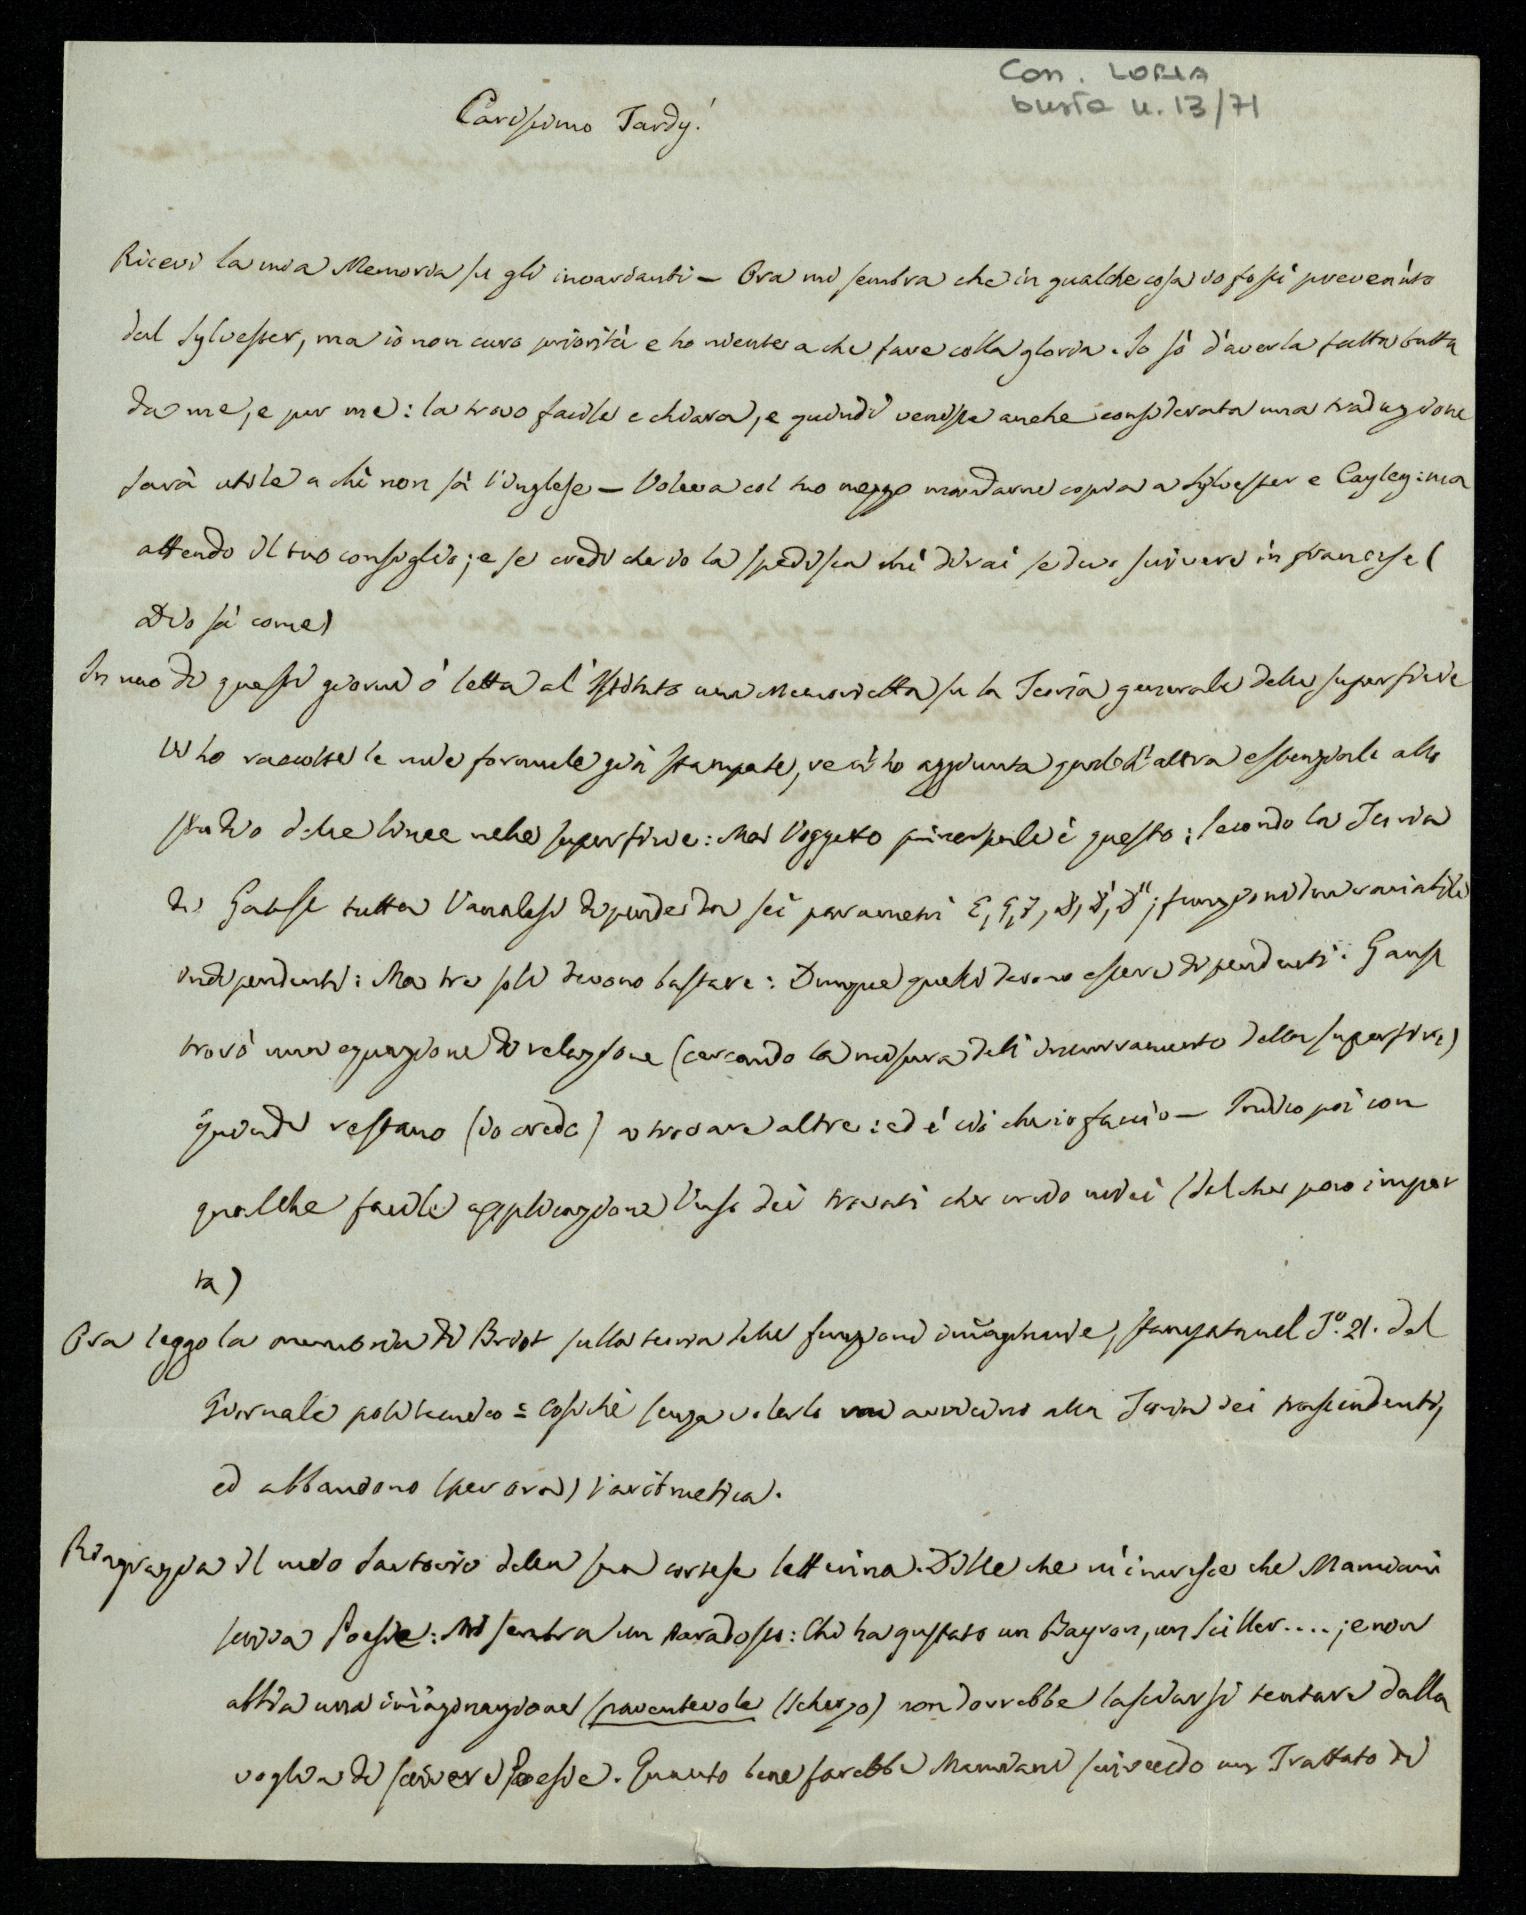 Con. LORIA
busta n. 13/71
Carissimo Tardy!
Ricevi la mia Memoria su gli invarianti – Ora mi sembra che in qualche cosa io fossi prevenuto
dal Sylvester, ma io non curo priorità e ho niente a che fare colla gloria. Io sò d'averla fatta tutta
da me, e per me: la trovo facile e chiara, e quindi venisse anche considerata una traduzione
sarà utile a chi non sà l'inglese – Voleva col tuo mezzo mandarne copia a Sylvester e Cayley: ma
attendo il tuo consiglio; e se credi che io la spedisca mi dirai se devo scrivere in francese (
Dio sà come)
In uno di questi giorni ò letta al Istituto una Memorietta su la Teoria generale delle superficie
Vi ho raccolte le mie formule già stampate, ve n'ho aggiunta qualch'altra essenziale allo
studio delle linee nelle superficie: Ma l'oggetto principale è questo: secondo la Teoria
di Gauss tutta l'analisi dipende da sei parametri E, G, F, D, D', D''; funzioni due variabili
indipendenti: Ma tre soli devono bastare: Dunque quelli devono essere dipendenti: Gauss
trovò una equazione di relazione (cercando la misura dell'incurvamento della superficie)
Quindi restano (io credo) a trovare altre: ed è ciò che io faccio – Indico poi con
qualche facile applicazione l'uso dei trovati che credo miei (del che poco impor
ta)
Ora leggo la memoria di Briot sulla teoria delle funzioni immaginarie, stampata nel T.º 21. del
Giornale politecnico = Cosichè senza volerlo mi avvicino alla Teoria dei trascendenti,
ed abbandono (per ora) l'aritmetica.
Ringrazia il medo della sua cortese letterina. Dille che m'incresce che Mamiani
scriva Poesie: Mi sembra un Paradosso: Chi ha gustato un Bayron, un Sciller....; e non
abbia una immaginazione spaventevole (scherzo) non dovrebbe lasciarsi tentare dalla
voglia di scrivere Poesie. Quanto bene farebbe Mamiani scrivendo un Trattato di